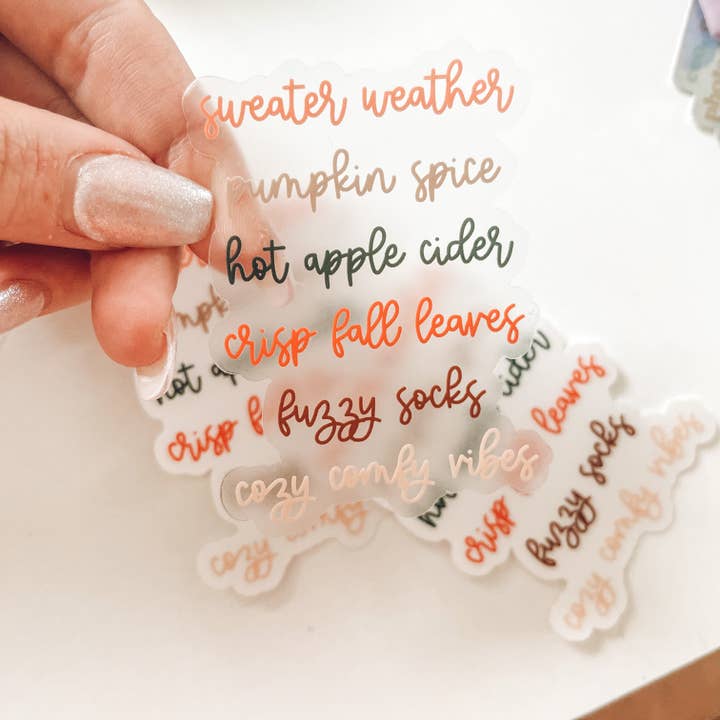 sweater weather
pumpkin spice
hot apple cider
crisp fall leaves
fuzzy socks
cozy comfy vibes
hot
crisp
cozy comfy
cider
leaves
crisp
fuzzy socks
cozy comfy vibes